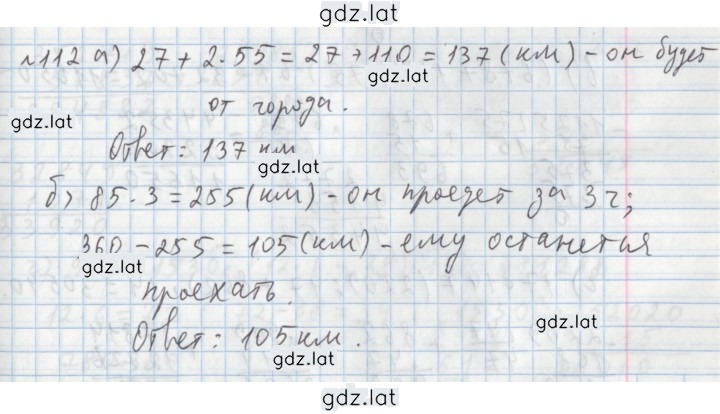 gdz.lat
№112 а) 27 + 2·55 = 27 + 110 = 137 (км) - он будет
gdz.lat
от города.
gdz.lat
Ответ: 137 км
gdz.lat
б) 85·3 = 255 (км) - он проедет за 3 ч;
360 - 255 = 105 (км) - ему останется
gdz.lat
проехать.
gdz.lat
Ответ: 105 км.
gdz.lat
gdz.lat